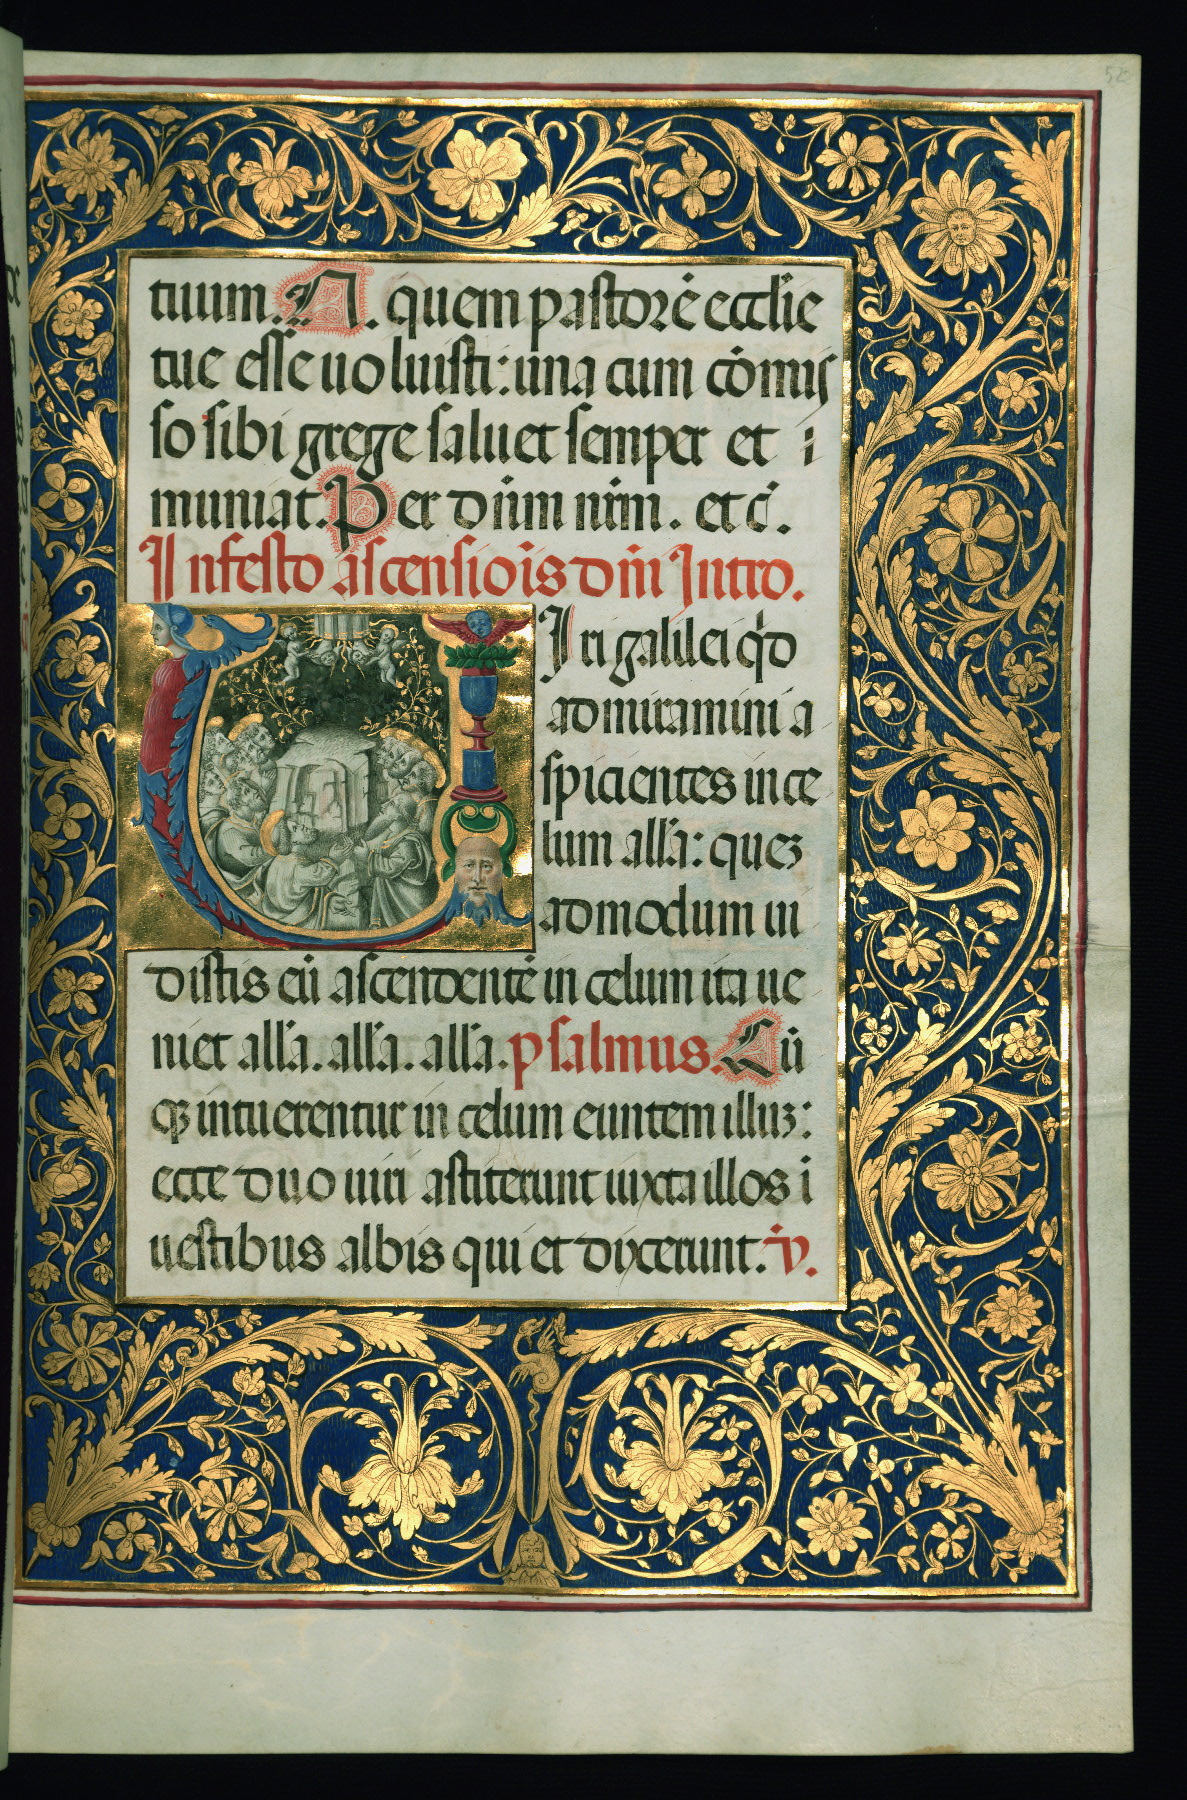 52
tuum. N. quem pastorē eccl'ie
tue esse uoluisti: una cum cōmis
so sibi grege saluet semper et ī
muniat. Per dn̄m nr̄m. et c̄.
In festo ascensiōis dn̄i Intro.
Viri galilei qd̄
admiramini a
spicientes in ce
lum all'a: quēꝫ
admodum ui
distis eū ascendentē in celum ita ue
niet all'a. all'a. all'a. psalmus. Cū
qꝫ intuerentur in celum euntem illuꝫ:
ecce duo uiri astiterunt iuxta illos ī
uestibus albis qui et dixerunt. v̄.